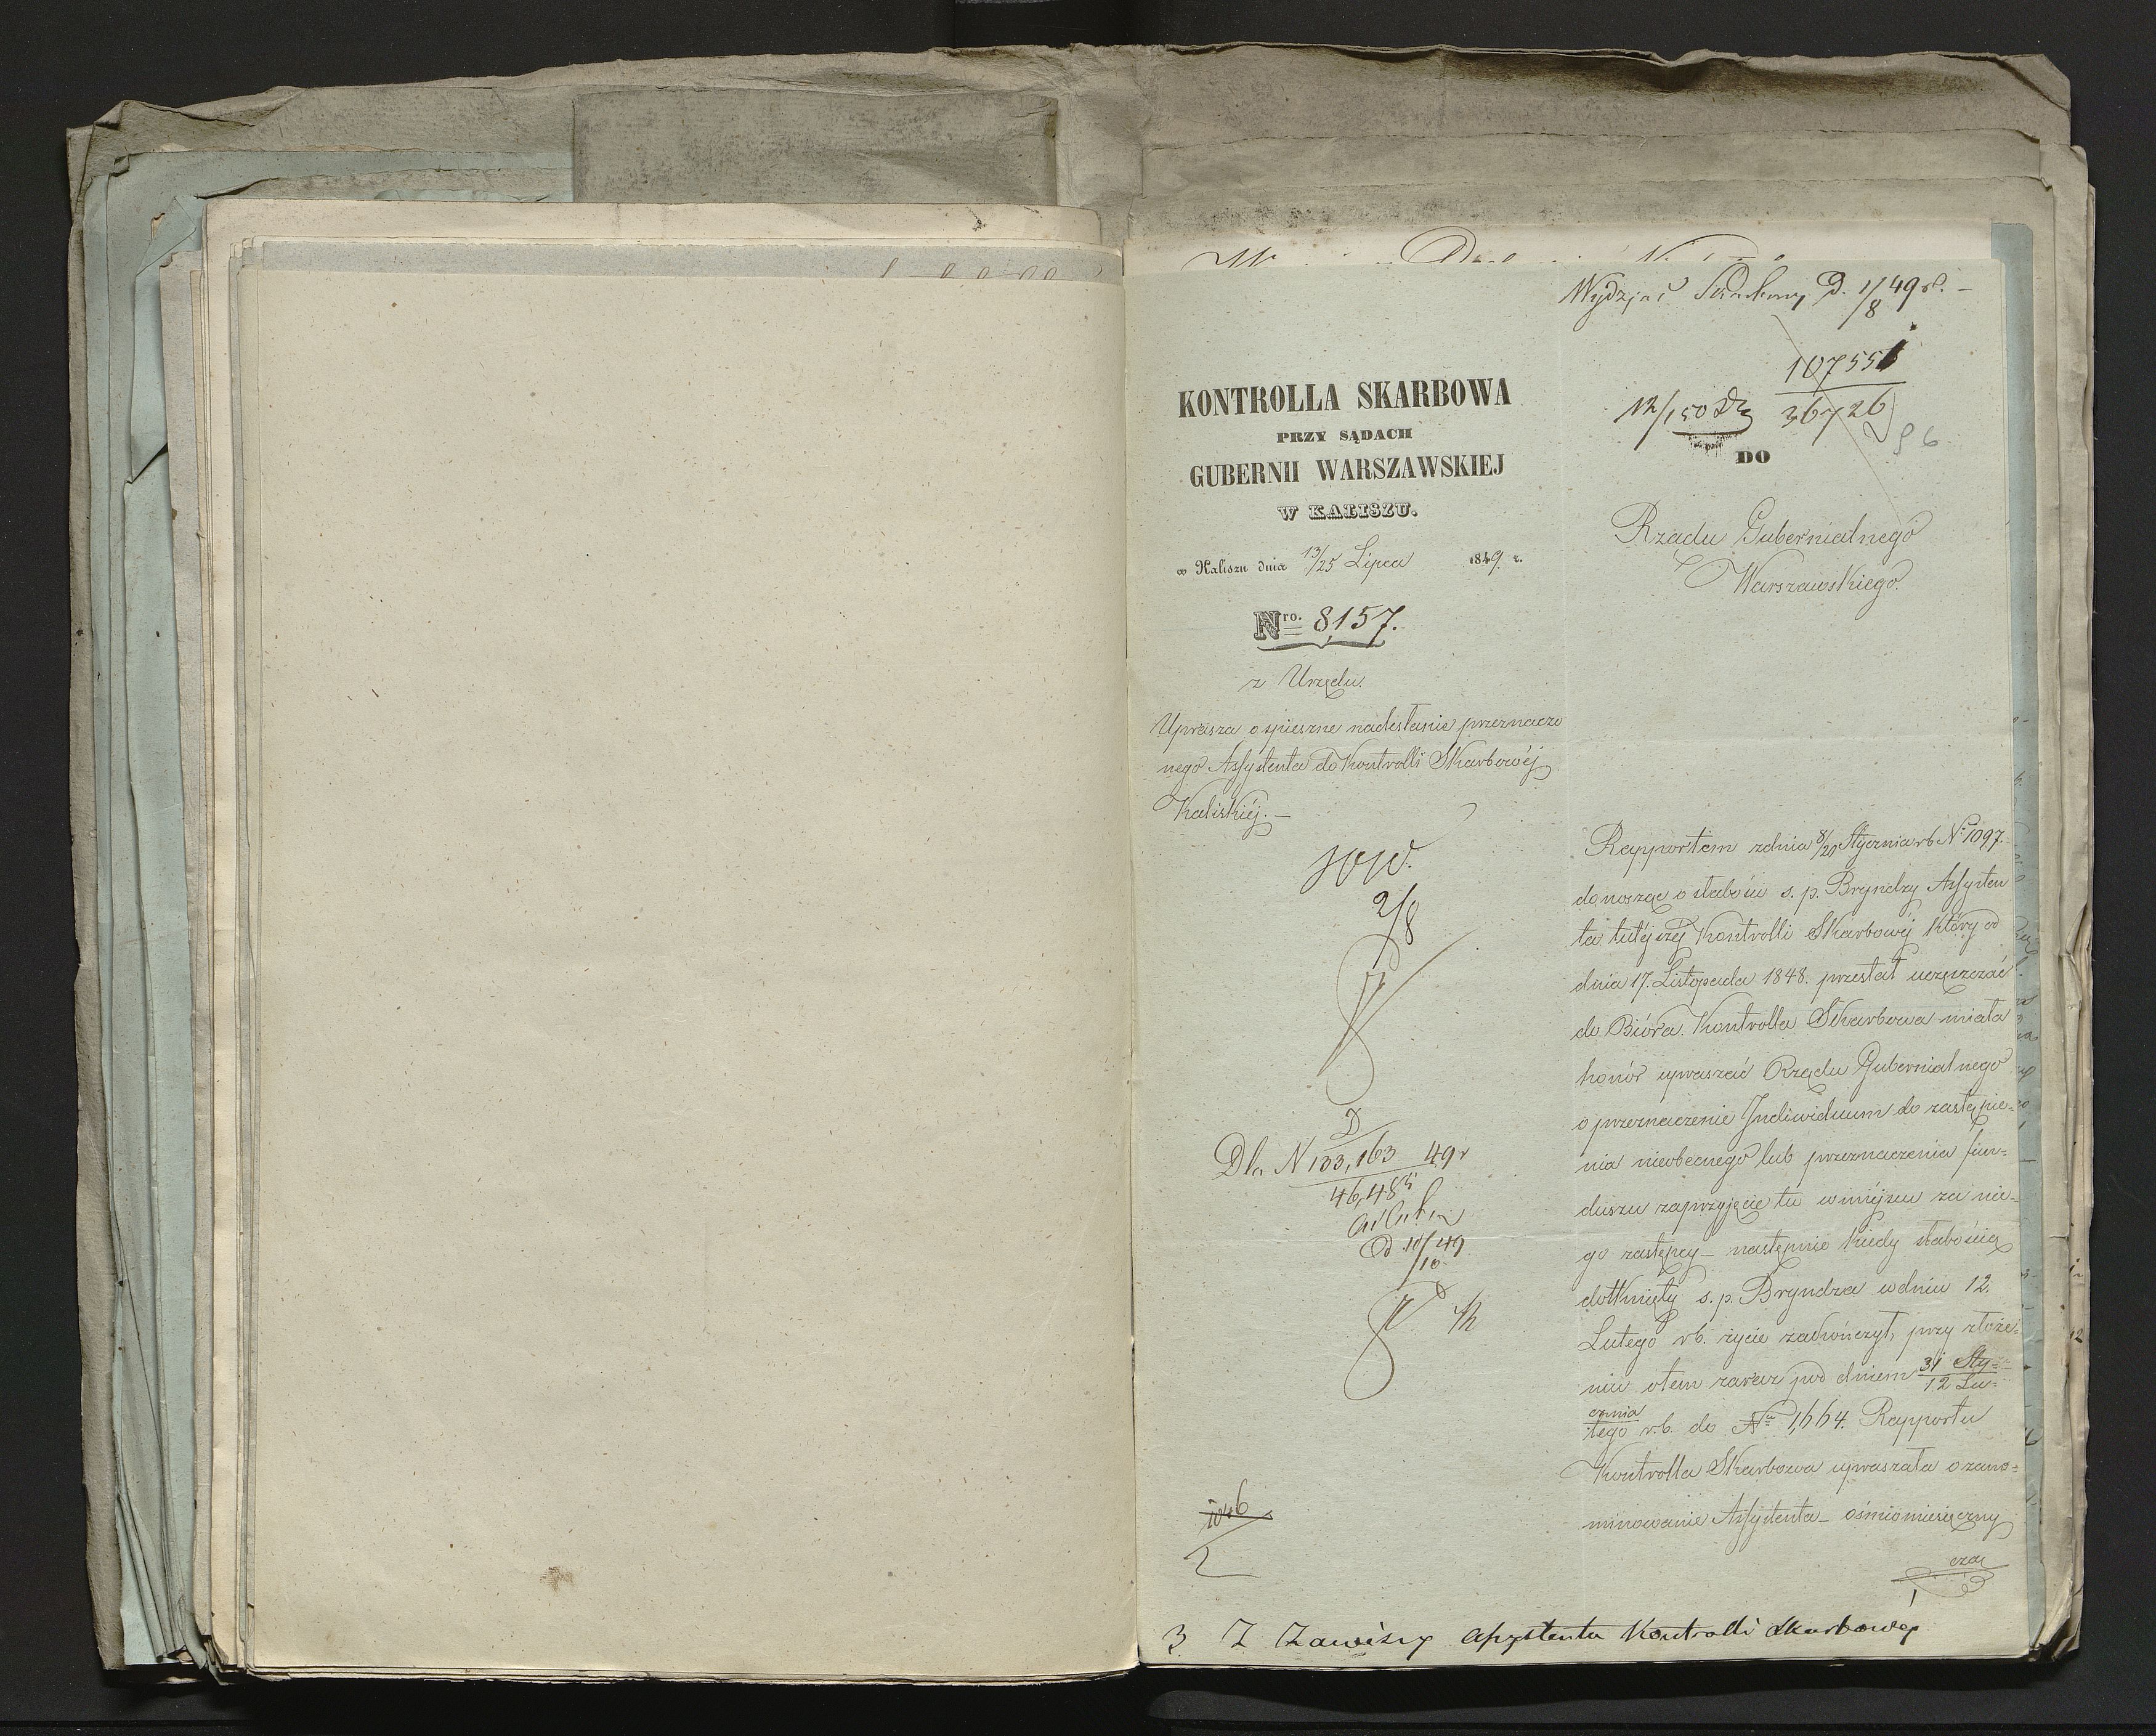 Wydział Skarbowy D. 1/8 49 r. –
107551
36726
96
KONTROLLA SKARBOWA
PRZY SĄDACH
GUBERNII WARSZAWSKIEJ
W KALISZU.
w Kaliszu dnia 13/25 Lipca 1849 r.
Nro. 8157.
z Urzędu.
Uprasza o spieszne nadesłanie przeznaczo
nego Assystenta do Kontrolli Skarbowéj
Kaliskiéj. –
2/8
Dla N 133,163 49 r
Od 11/10 49
DO
Rządu Gubernialnego
Warszawskiego.
Rapportem z dnia 8/20 Stycznia rb N. 1097.
donosząc o słabości s. p. Bryndzy Assysten
ta tutéjszéj Kontrolli Skarbowéj który od
dnia 17. Listopada 1848. przestał uczęszczać
do Bióra. Kontrolla Skarbowa miała
honór upraszać Rządu Gubernialnego
o przeznaczenie Indiwiduum do zastąpie-
nia nieobecnego lub przeznaczenia fun-
duszu na przyjęcie tu w miéjscu za nie-
go zastępcy – następnie kiedy słabością
dotknięty s. p. Bryndza w dniu 12.
Lutego rb. życie zakończył, przy złoże-
niu o tem zaraz pod dniem 31 Sty-/12 Lu-
cznia/tego r.b. do Nru 1,664. Rapportu
Kontrolla Skarbowa upraszała o zano-
minowanie Assystenta – ośmiomiesięczny
czas
3 Z Zawiszy Assystenta Kontrolli Skarbowéj